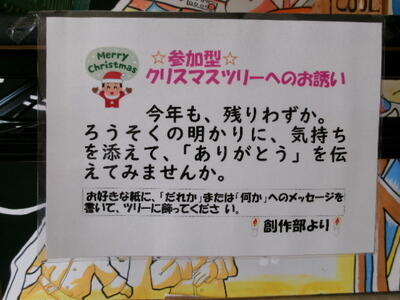 COOL
Merry
Christmas
☆参加型☆
クリスマスツリーへのお誘い
今年も、残りわずか。
ろうそくの明かりに、気持ち
を添えて、「ありがとう」を伝
えてみませんか。
お好きな紙に、「だれか」または「何か」へのメッセージを
書いて、ツリーに飾ってくださ い。
創作部より